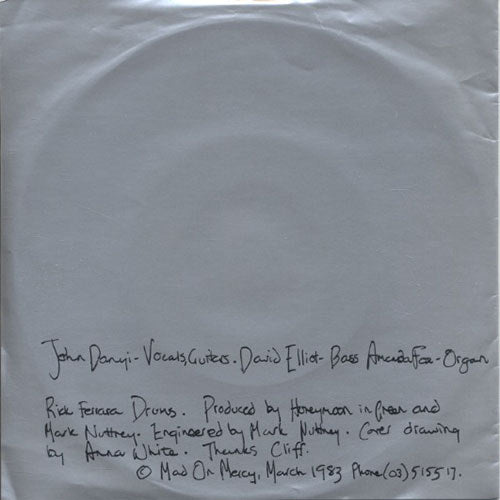 John Danyi - Vocals, Guitars. David Elliot - Bass Amanda Fox - Organ
Rick Ferrara Drums. Produced by Honeymoon in Green and
Mark Nuttney. Engineered by Mark Nuttney. Cover drawing
by Anna White. Thanks Cliff.
© Mad On Mercy, March 1983 Phone (03) 515517.